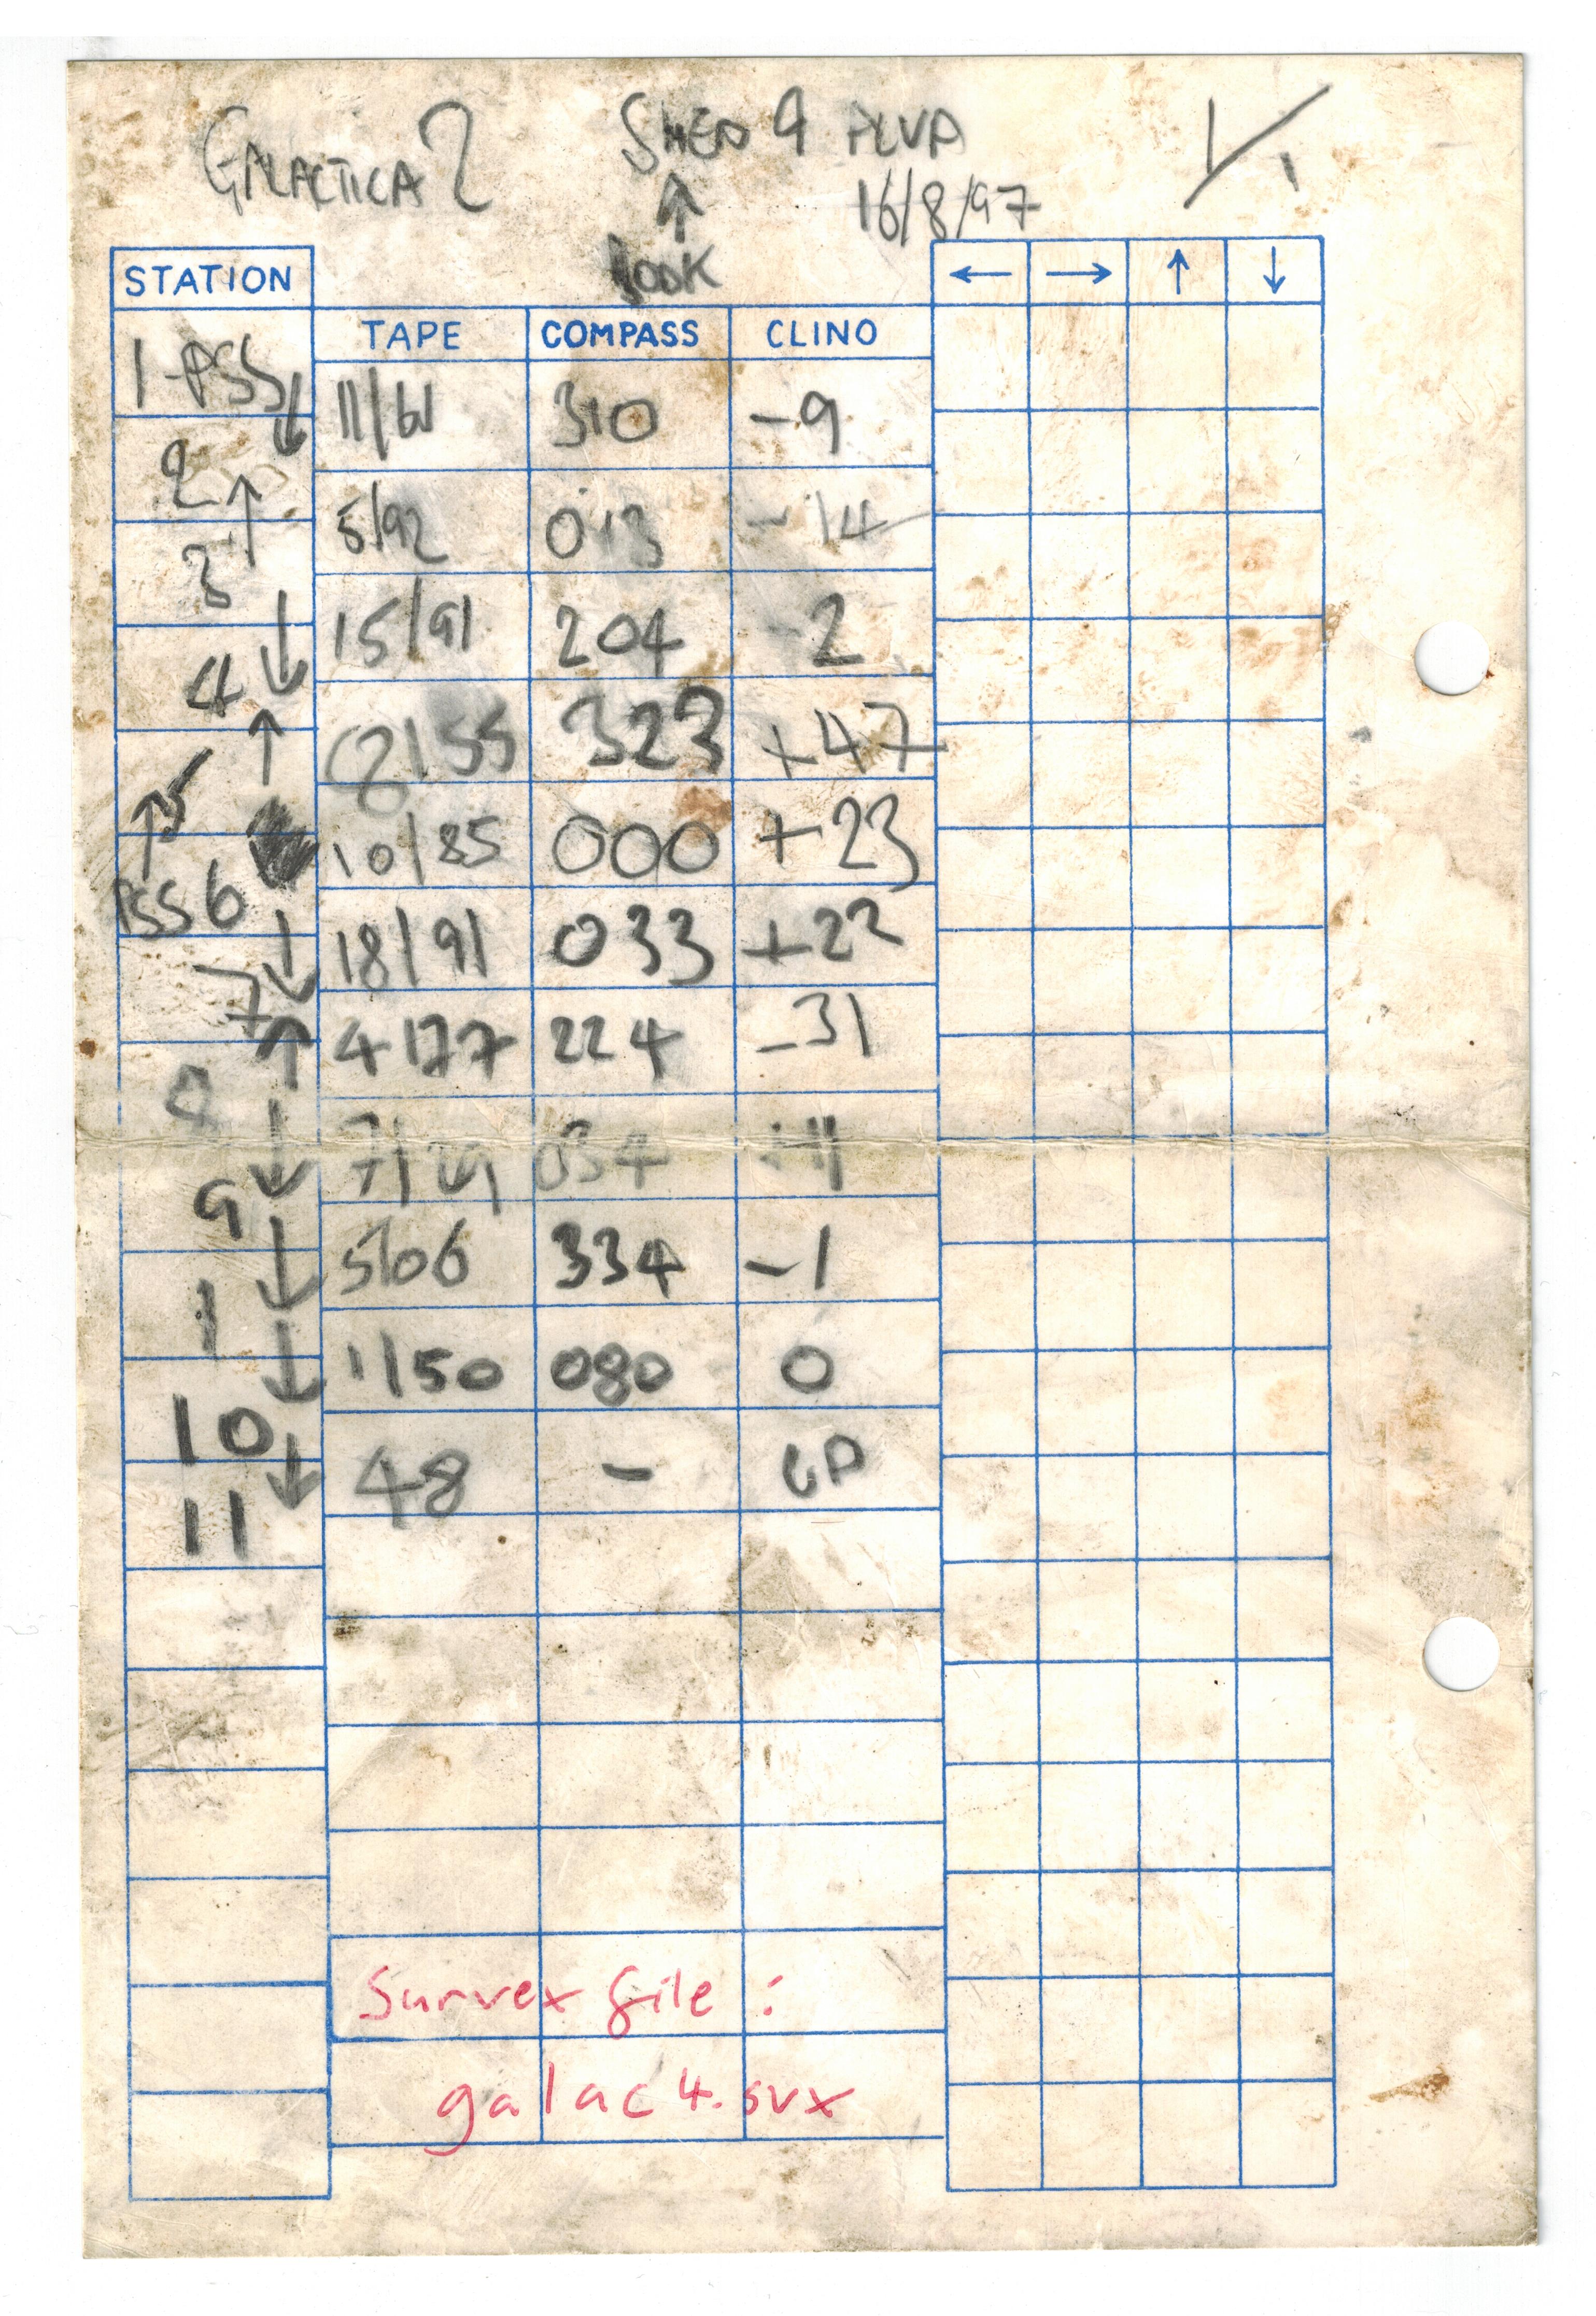 GALACTICA 2 SHED 9 ALVA 1/1
↑ 16/8/97
BOOK
STATION ← → ↑ ↓
TAPE COMPASS CLINO
1 PSS ↓ 11/61 310 -9
2 ↑ 5/92 013 -14
3 ↓ 15/91 204 -2
4 ↑ 8/55 323 +47
5 ↑ 10/85 000 +23
PSS 6 ↓ 18/91 033 +22
7 ↑ 4/77 224 -31
8 ↓ 034
9 ↓ 5/06 334 -1
1 ↓ 1/50 080 0
10 ↓ 48 - UP
11
Survex file :
galac4.svx